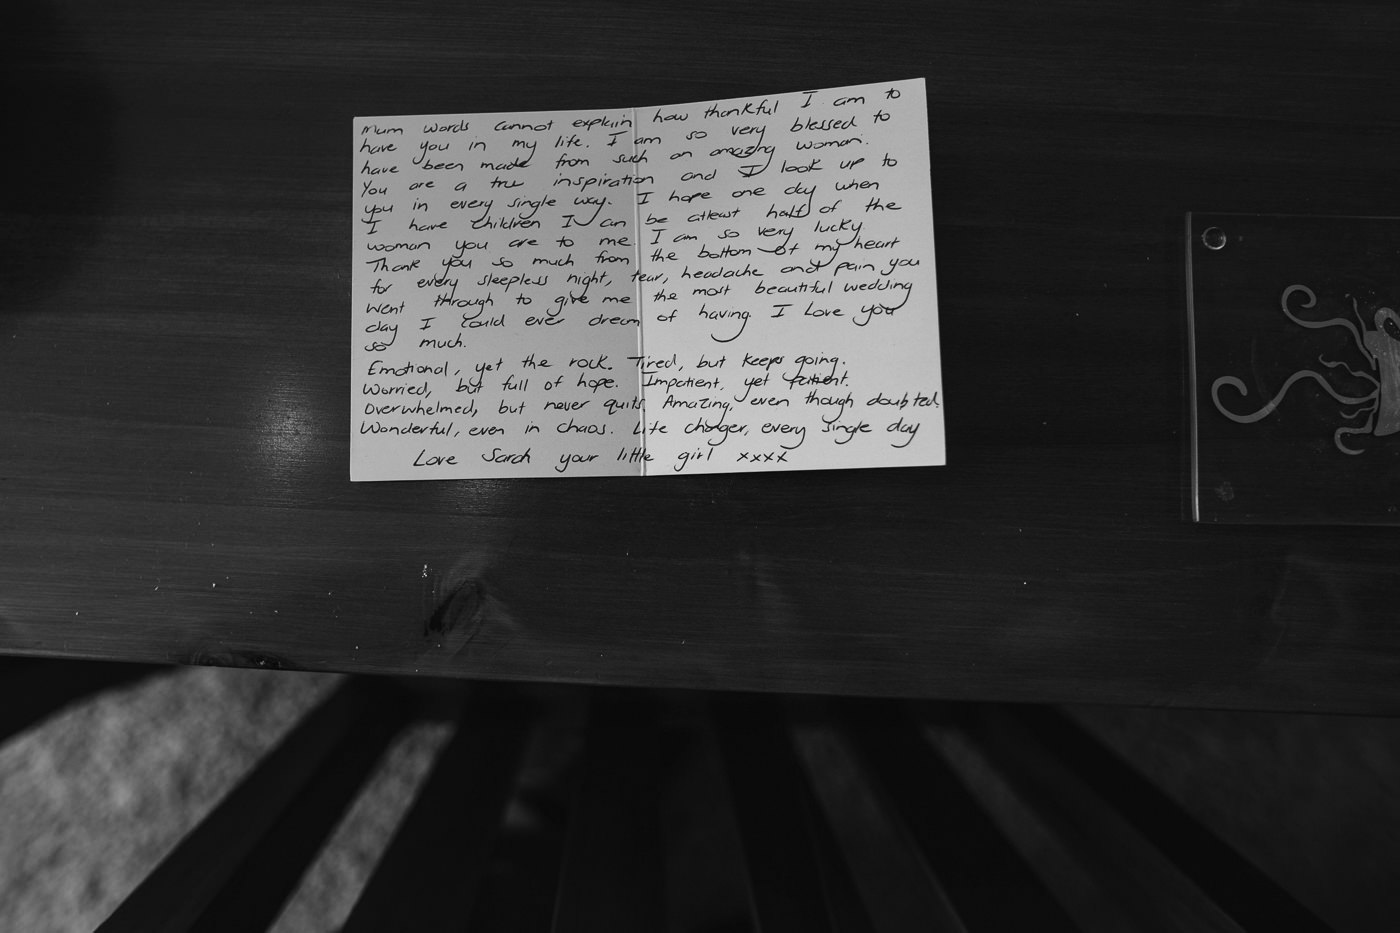 Mum words cannot explain how thankful I am to
have you in my life. I am so very blessed to
have been made from such an amazing woman.
You are a true inspiration and I look up to
you in every single way. I hope one day when
I have children I can be atleast half of the
woman you are to me. I am so very lucky.
Thank you so much from the bottom of my heart
for every sleepless night, tear, headache and pain you
went through to give me the most beautiful wedding
day I could ever dream of having. I Love you
so much.
Emotional, yet the rock. Tired, but keeps going.
Worried, but full of hope. Impatient, yet patient.
Overwhelmed, but never quits. Amazing, even though doubted.
Wonderful, even in chaos. Life changer, every single day
Love Sarah your little girl xxxx